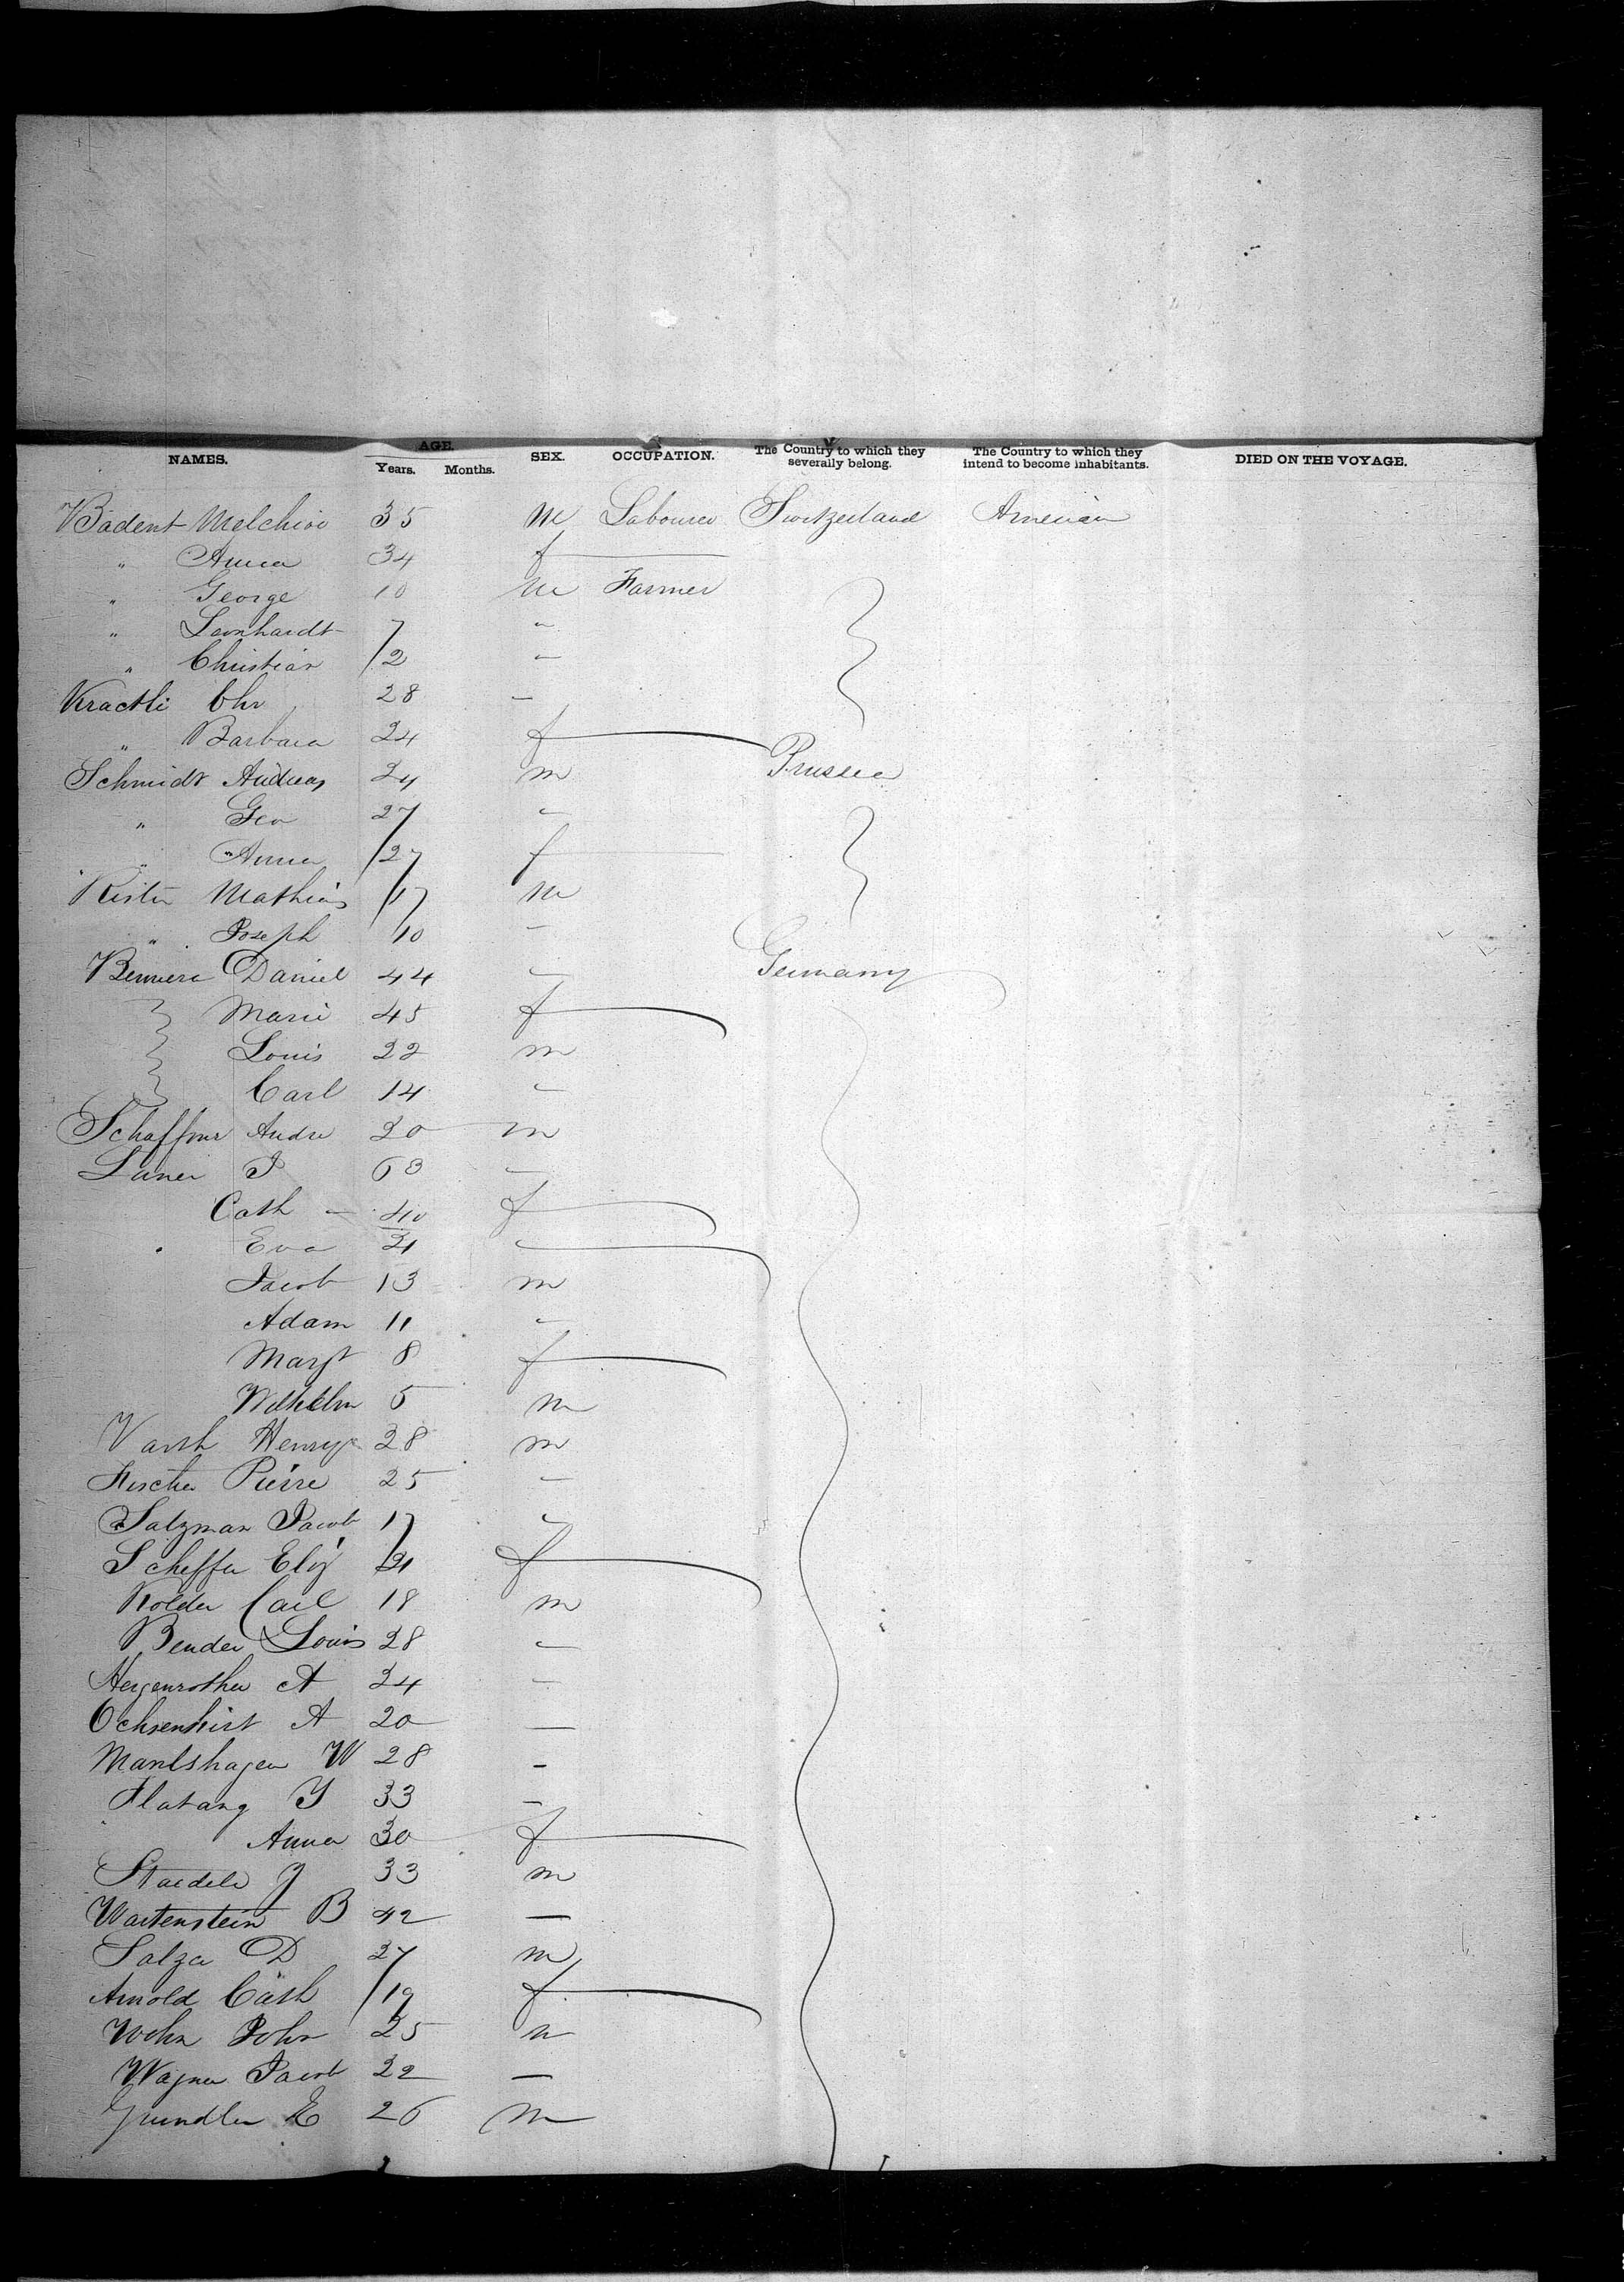 NAMES. AGE. Years. Months. SEX. OCCUPATION. The Country to which they severally belong. The Country to which they intend to become inhabitants. DIED ON THE VOYAGE.
Badent Melchior 35 m Labourer Switzerland American
" Anna 34 f
" George 10 m Farmer
" Leonhardt 7 "
" Christian 2 "
Kraettli Chr 28 "
" Barbara 24 f
Schmidt Andreas 24 m Prussia
" Geo 27 "
" Anna 27 f
Rister Mathias 17 m
" Joseph 10 "
Daniel 44 " Germany
Marie 45 f
Louis 22 m
Carl 14 "
Schaffner Andre 20 m
Laner J 63 "
Cath 40 f
Eva 21 "
Jacob 13 m
Adam 11 "
Margt 8 f
Wilhelm 5 m
Varsh Henry 28 m
Fischer Pierre 25 "
Salzman Jacob 17 "
Scheffer Eliz 21 f
Kolder Carl 18 m
Bender Louis 28 "
Hergenrother A 24 "
Ochsenhirt A 20 "
Mantshagen W 28 "
Flatang J 33 "
Anna 30 f
Staedele J 33 m
Wartenstein B 42 "
Salza D 27 m
Arnold Cath 19 f
Wohn John 25 m
Wagner Jacob 22 "
Grundler E 26 m